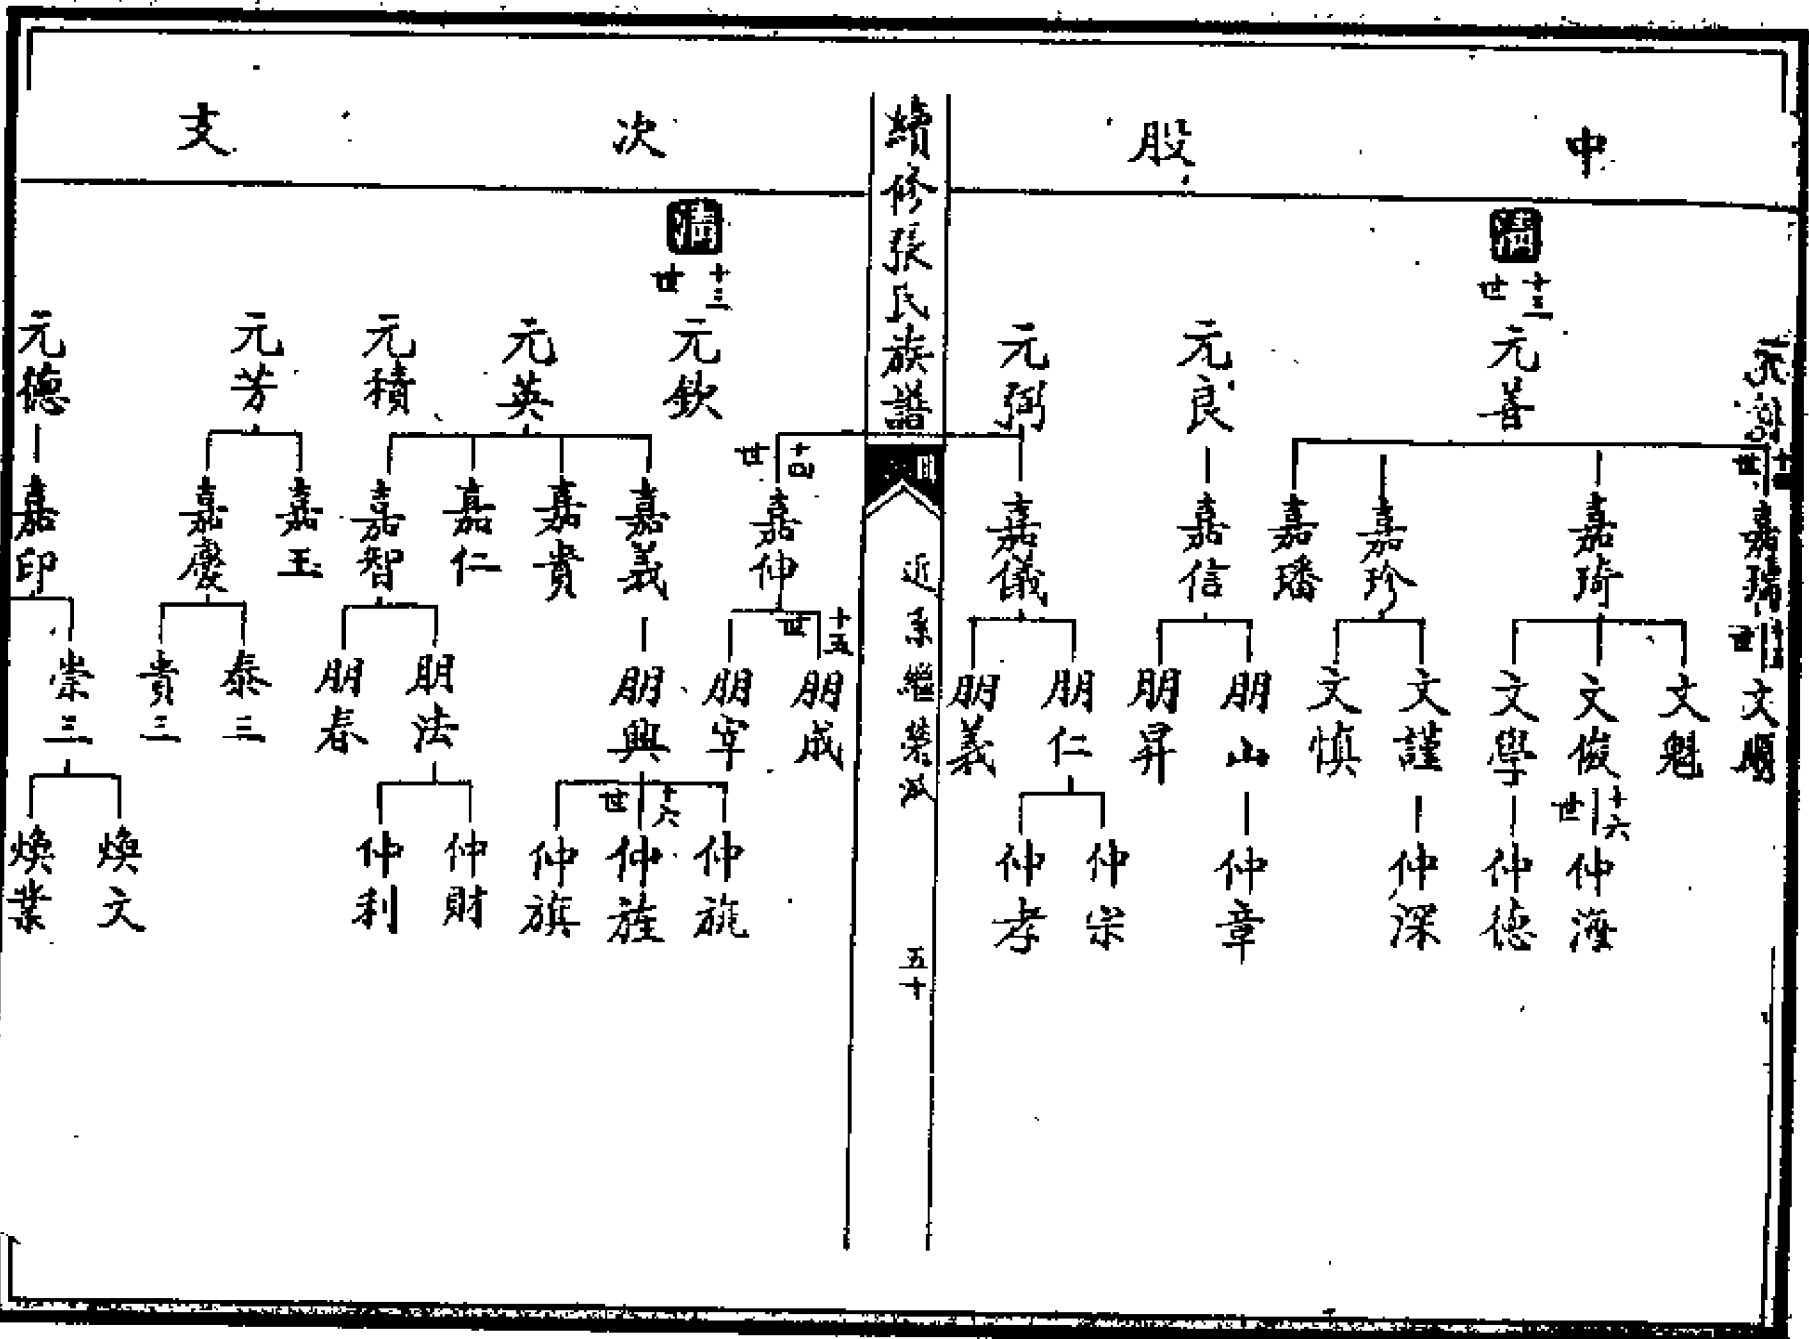 中股
清
十三世
元善
元良
元弼
十四世
嘉瑞
嘉琦
嘉珍
嘉璠
嘉信
嘉儀
十五世
文魁
文俊
文學
文謹
文慎
朋山
朋昇
朋仁
朋義
十六世
仲海
仲德
仲深
仲章
仲宗
仲孝
續修張氏族譜
五十
次支
清
十三世
元欽
元英
元積
元芳
元德
十四世
嘉仲
嘉義
嘉貴
嘉仁
嘉智
嘉玉
嘉慶
嘉印
十五世
朋成
朋宰
朋興
朋法
朋春
泰三
貴三
崇三
十六世
仲旌
仲旗
仲財
仲利
煥文
煥業